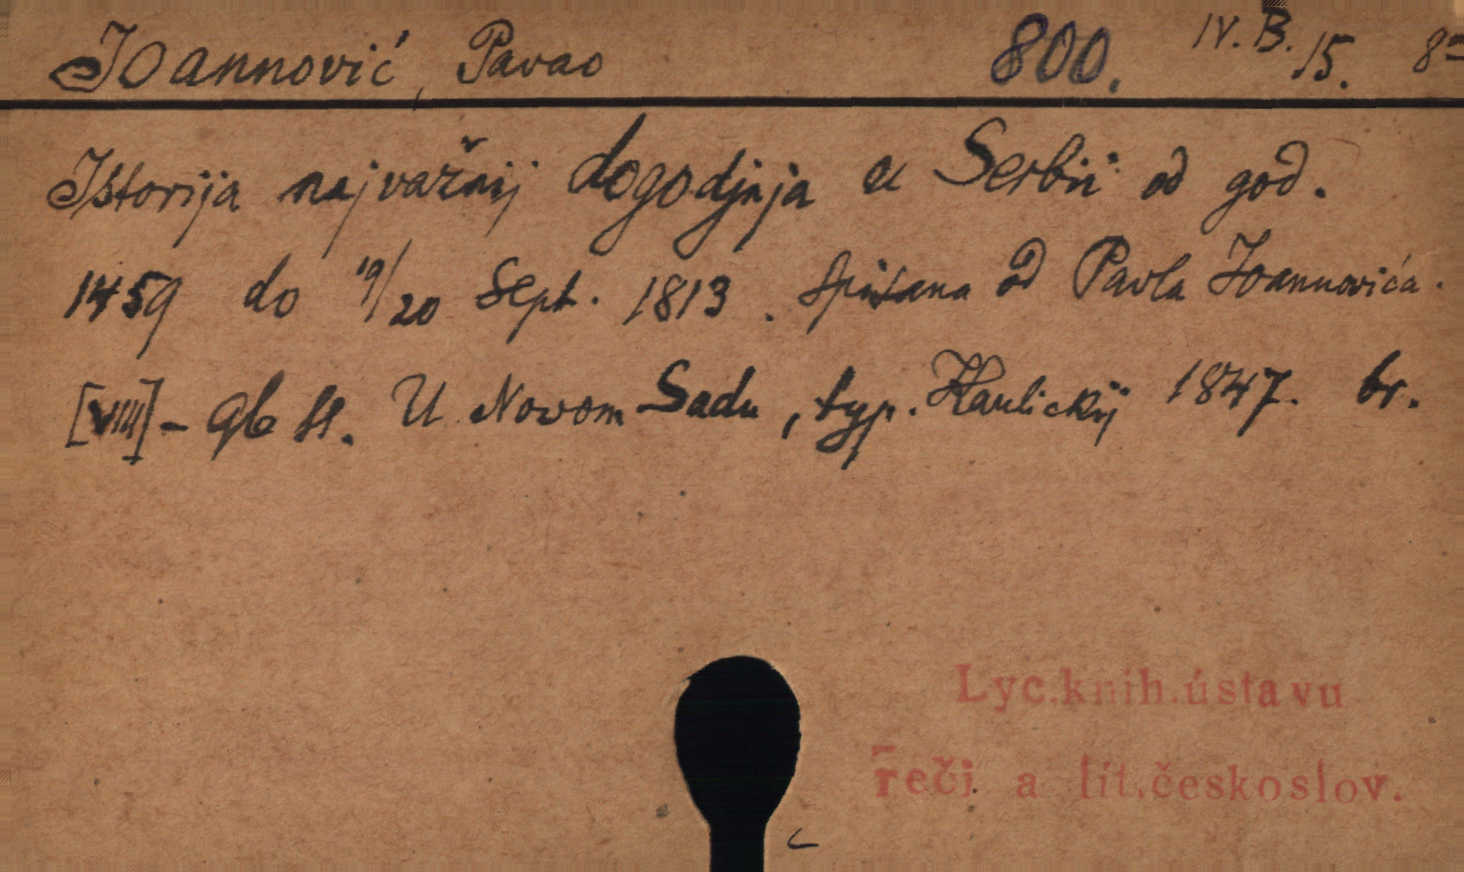 Joannović, Pavao 800. IV. B. 15. 8°
Istorija najvažnij dogodjnja u Serbii od god.
1459 do 19/20 Sept. 1813. Spisana od Pavla Joannovića.
[VIII] - 96 st. U Novom Sadu, typ. Kaulickij 1847. br.
Lyc.knih.ústavu
řeči a lit.českoslov.